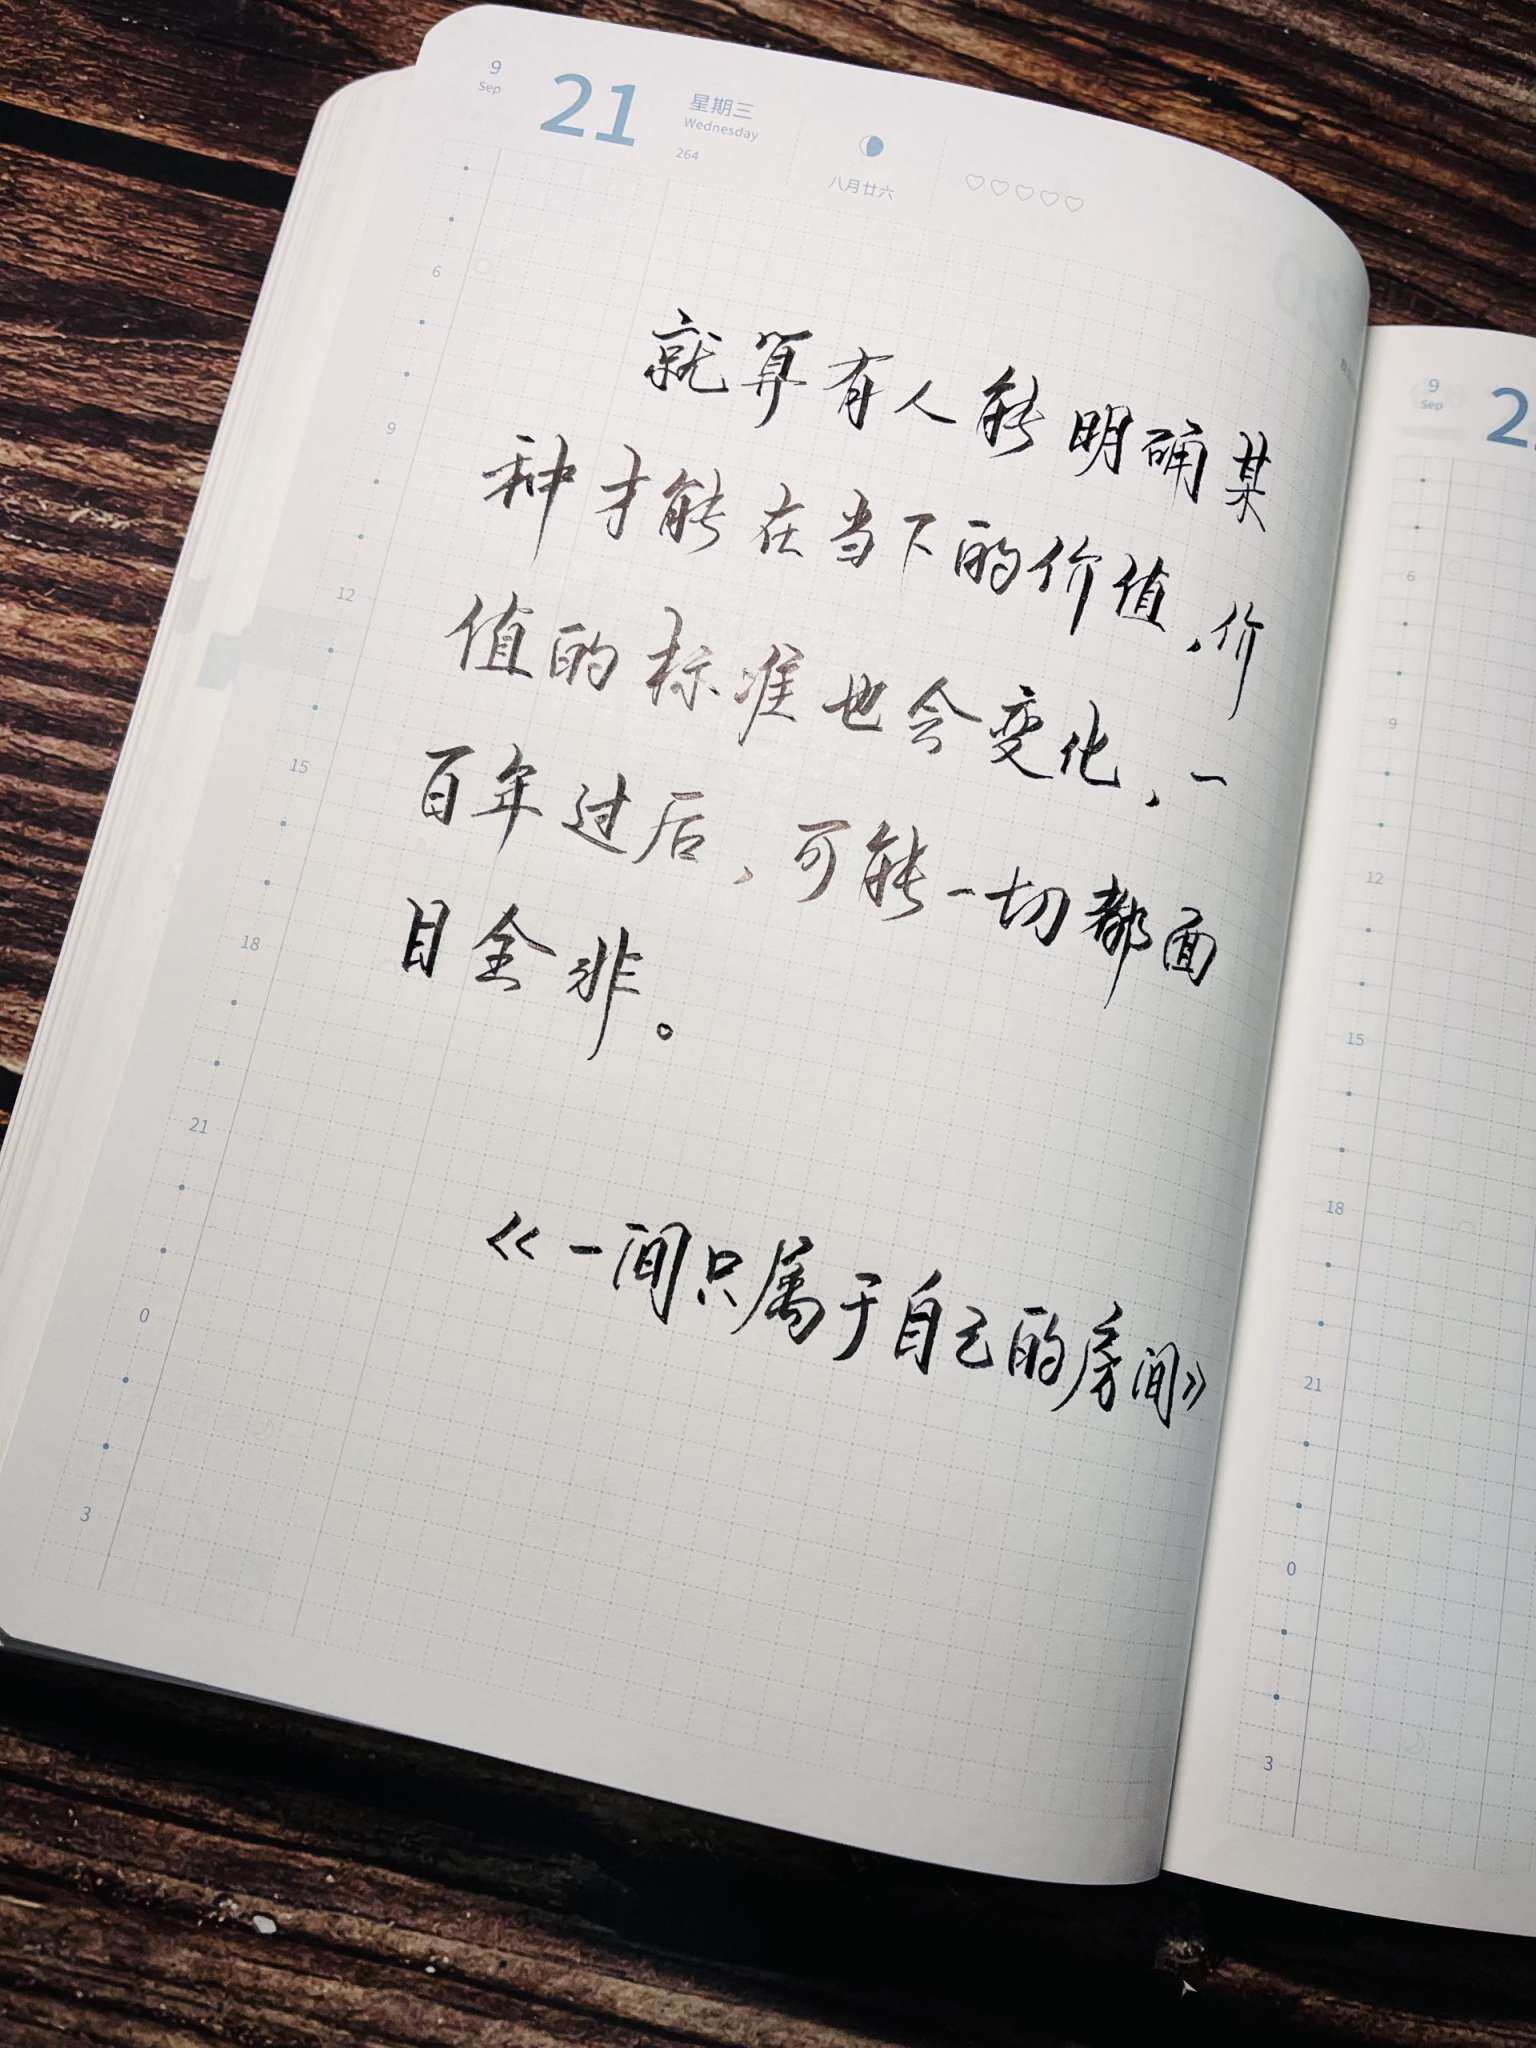 9
Sep
21
星期三
Wednesday
264
八月廿六
6
9
12
15
18
21
0
3
就算有人能明确某
种才能在当下的价值,价
值的标准也会变化,一
百年过后,可能一切都面
目全非。
《一间只属于自己的房间》
9
Sep
6
9
12
15
18
21
0
3